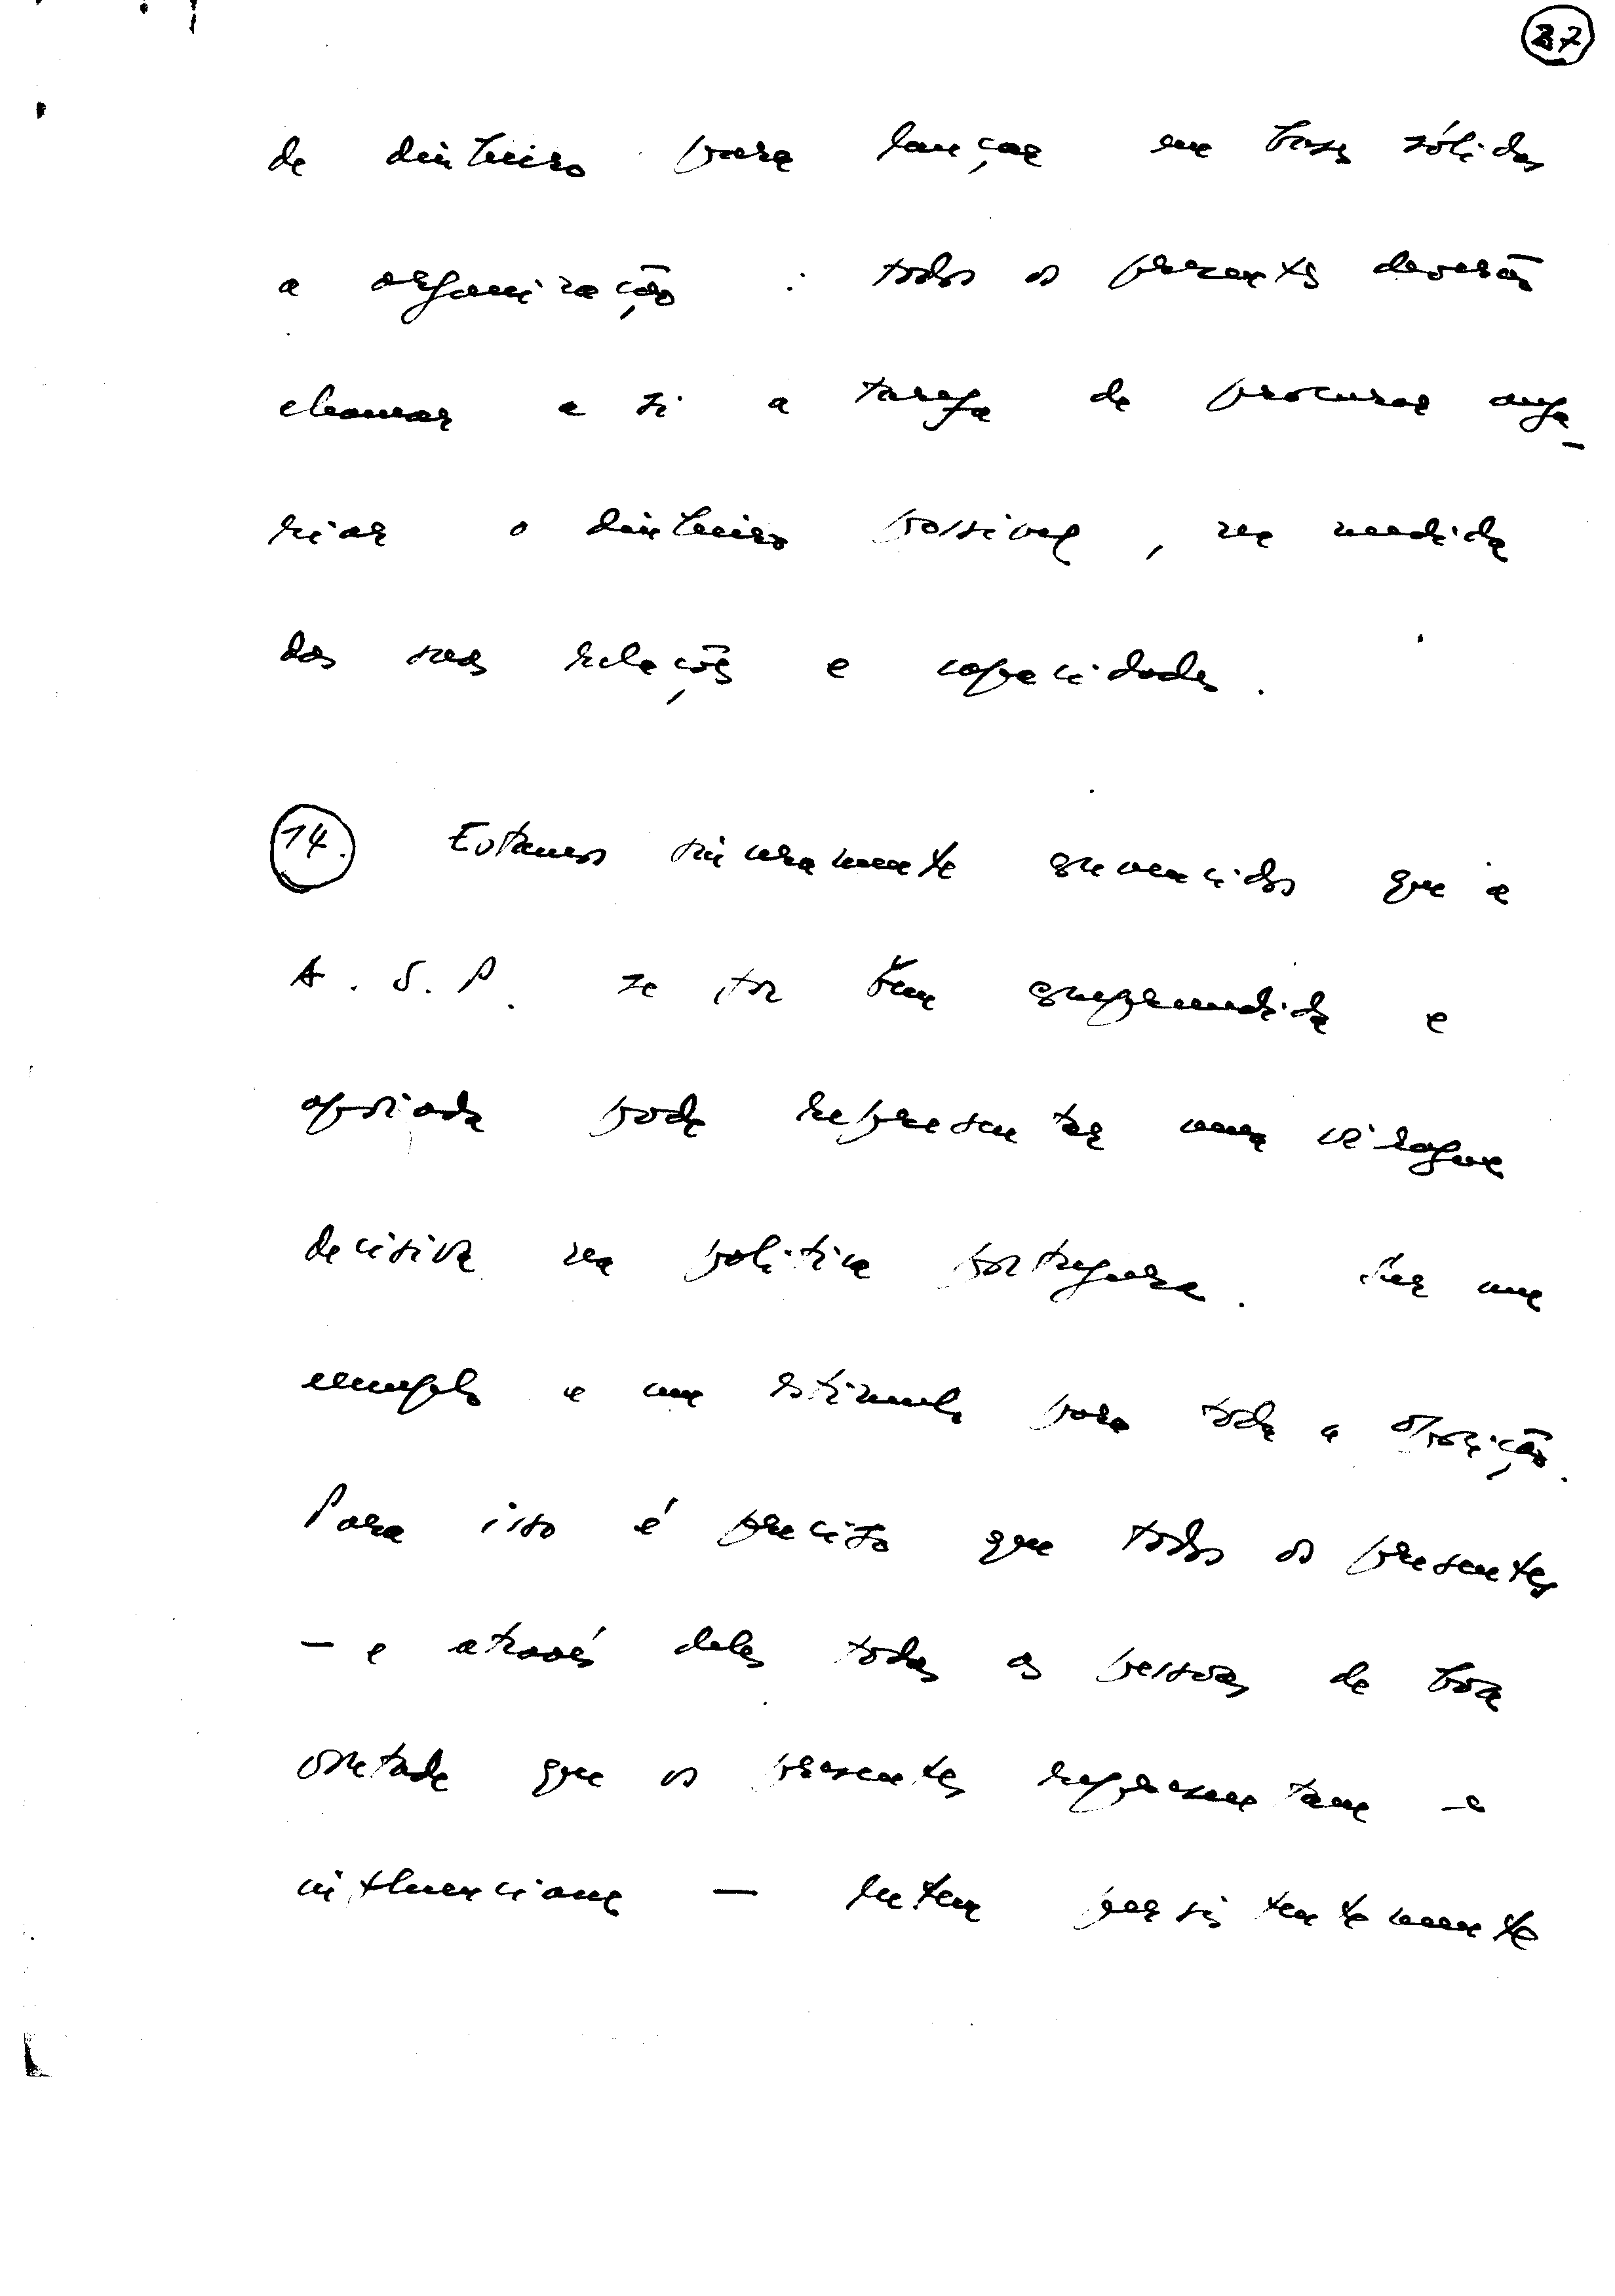 27
de dinheiro para lançar em bases sólidas
a organização : todos os presentes deverão
chamar a si a tarefa de procurar anga-
riar o dinheiro possível, na medida
das suas relações e capacidades.
14. Estamos sinceramente convencidos que a
A.S.P. se for bem compreendida e
apoiada pode representar uma viragem
decisiva na política portuguesa. Ser um
exemplo e um estímulo para toda a oposição.
Para isso é preciso que todos os presentes
— e através deles todas as pessoas de boa
vontade que os presentes representam e
influenciam — lutem persistentemente